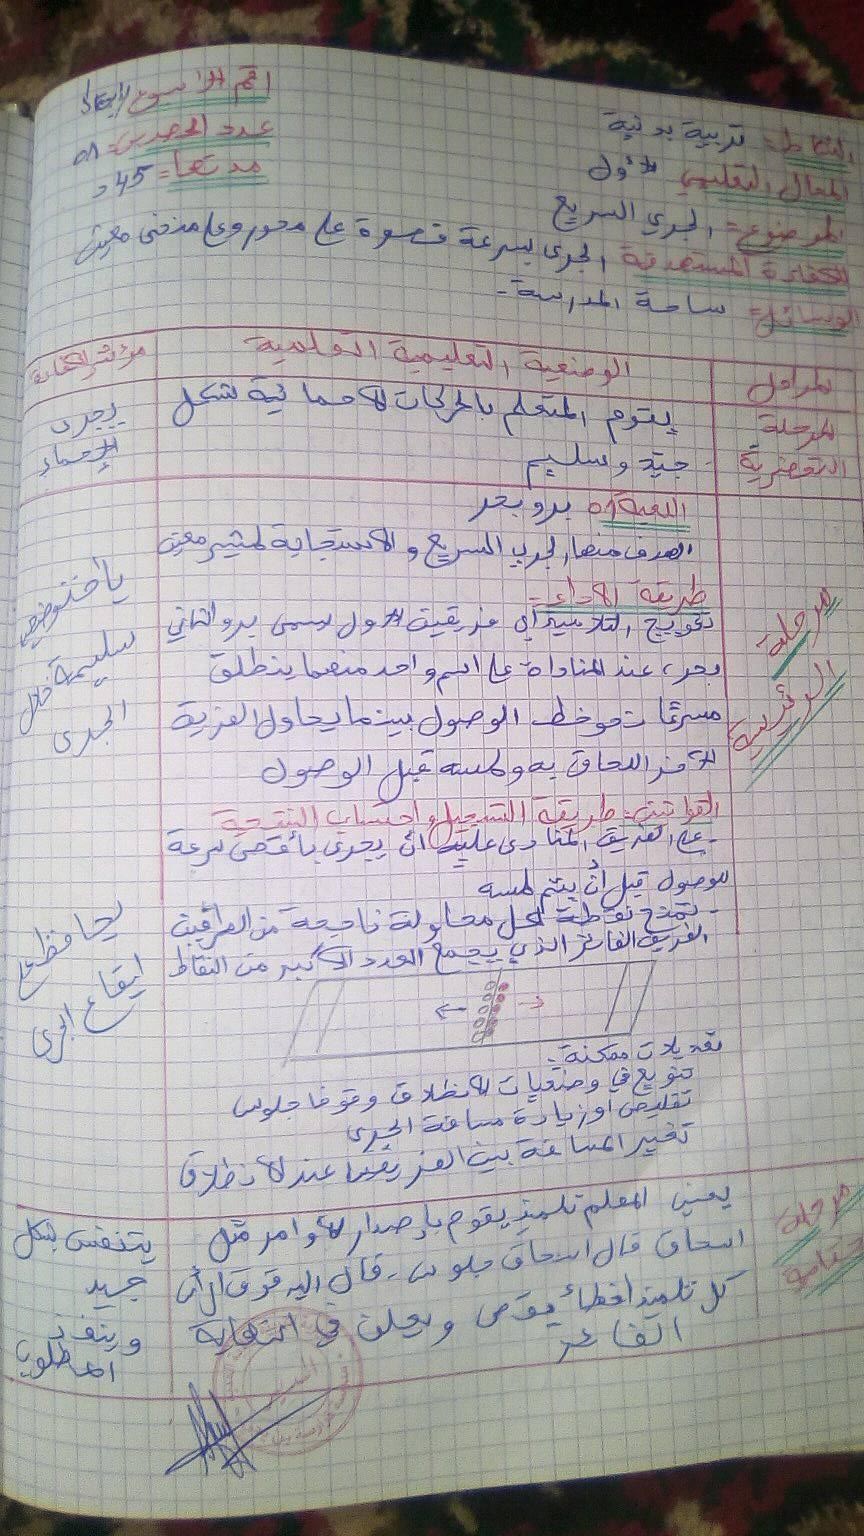 النشاط= تربية بدنية
المجال التعليمي الأول
الموضوع= الجري السريع
الكفاءة المستهدفة الجري بسرعة قصوة على محور وعلى منحنى معين
الوسائل= ساحة المدرسة.
رقم الأسبوع
عدد الحصص=
مدتها= 45 د
المراحل
الوضعية التعليمية التعلمية
مؤشر الكفاءة
المرحلة
التحضيرية
يقوم المتعلم بالحركات الاحمائية بشكل
جيد وسليم
يجري
الإحماء
مرحلة
اللعبة 01 بر و بحر
الهدف منها: الجري السريع والاستجابة لمثير معين
طريقة الأداء=
تفويج التلاميذ إلى فريقين الأول يسمى بر والثاني
بحر، عند المناداة على اسم واحد منهما ينطلق
مسرعا نحو خط الوصول بينما يحاول الفريق
الآخر اللحاق به ولمسه قبل الوصول
القوانين= طريقة التسجيل واحتساب النتيجة
- على الفريق المنادى عليه أن يجري بأقصى سرعة
للوصول قبل أن يتم لمسه
- تمنح نقطة لكل محاولة ناجحة من الطرفين
الفريق الفائز الذي يجمع العدد الأكبر من النقاط
تعديلات ممكنة=
تنويع في وضعيات الانطلاق وقوفا جلوس
تقليص أو زيادة مسافة الجري
تغيير المسافة بين الفريقين عند الانطلاق
يأخذ وضعية
سليمة خلال
الجري
يحافظ على
ايقاع الجري
مرحلة
ختامية
يعين المعلم تلميذ يقوم بإصدار الأوامر مثل
اسحاق قال اسحاق جلوس - قال اليد فوق الرأس
كل تلميذ أخطأ يقصى ويعلن في النهاية
الفائز
يتنفس بشكل
جيد
وينفذ
المطلوب